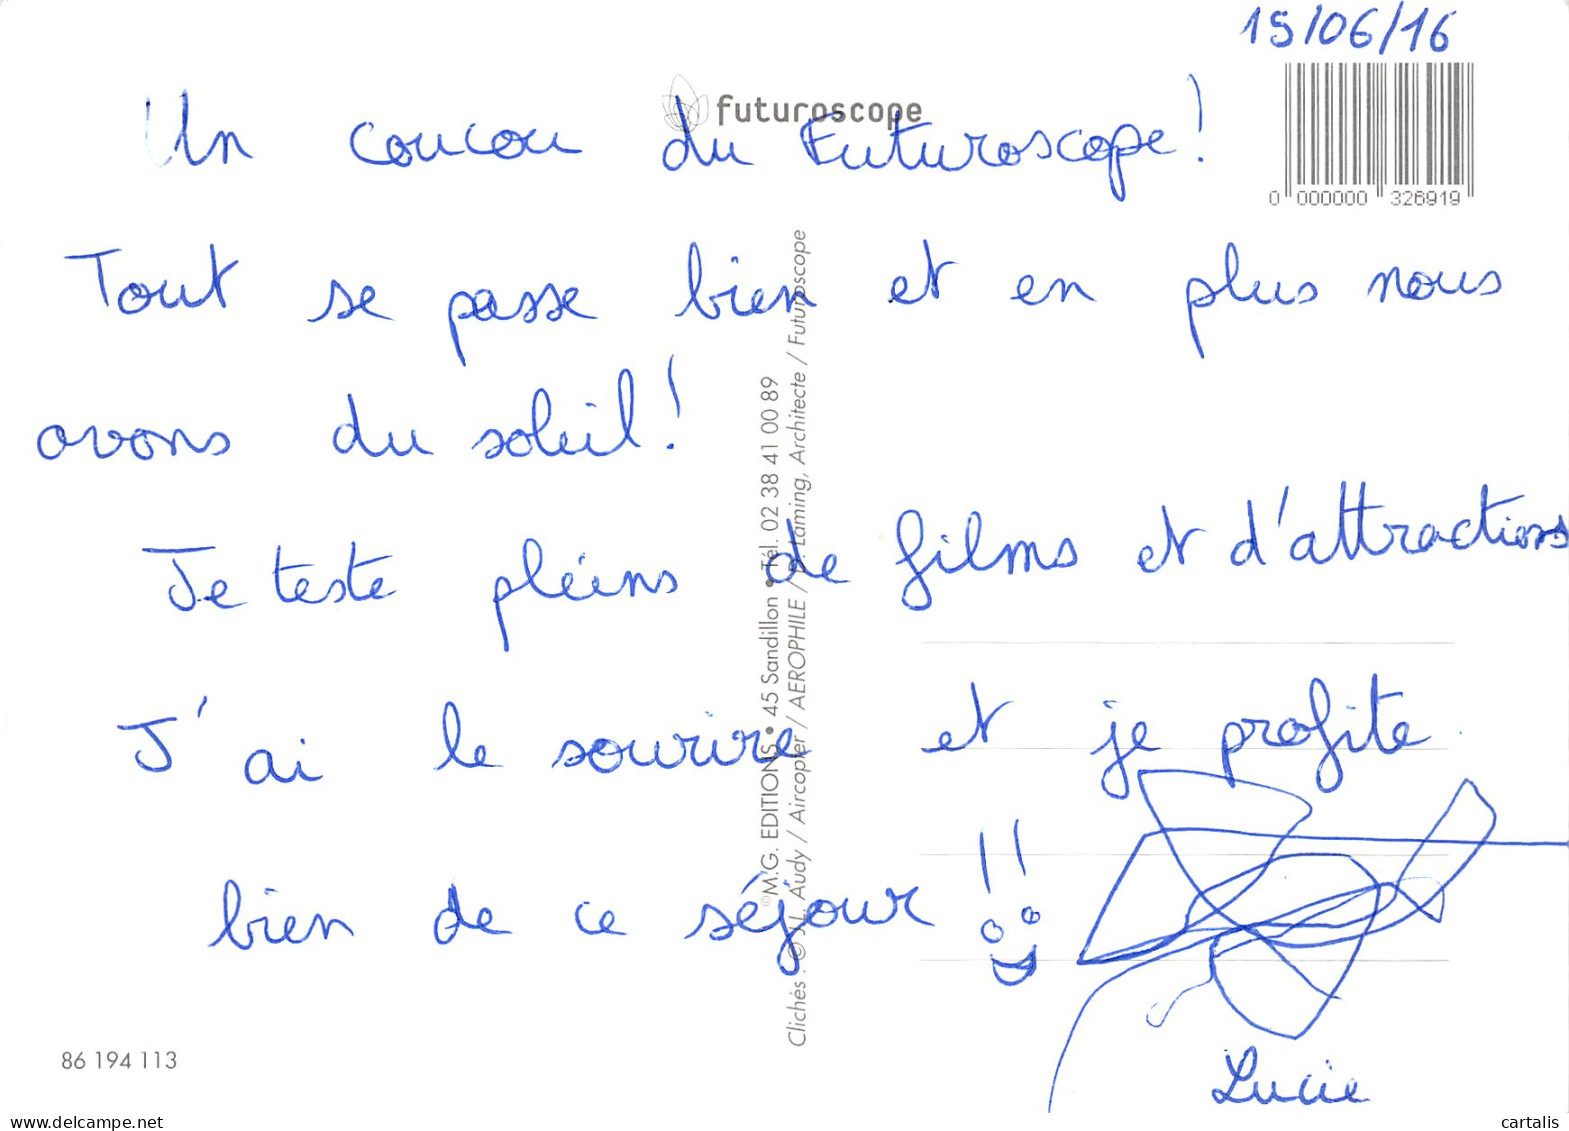 15/06/16
futuroscope
Un coucou du Futuroscope !
0 000000 326919
Tout se passe bien et en plus nous
avons du soleil !
Je teste pleins de films et d'attractions
J'ai le sourire et je profite
bien de ce séjour !!
Lucie
©M.G. EDITIONS • 45 Sandillon • Tél. 02 38 41 00 89
Clichés : © J.L. Audy / Aircopter / AEROPHILE / D. Laming, Architecte / Futuroscope
86 194 113
www.delcampe.net
cartalis